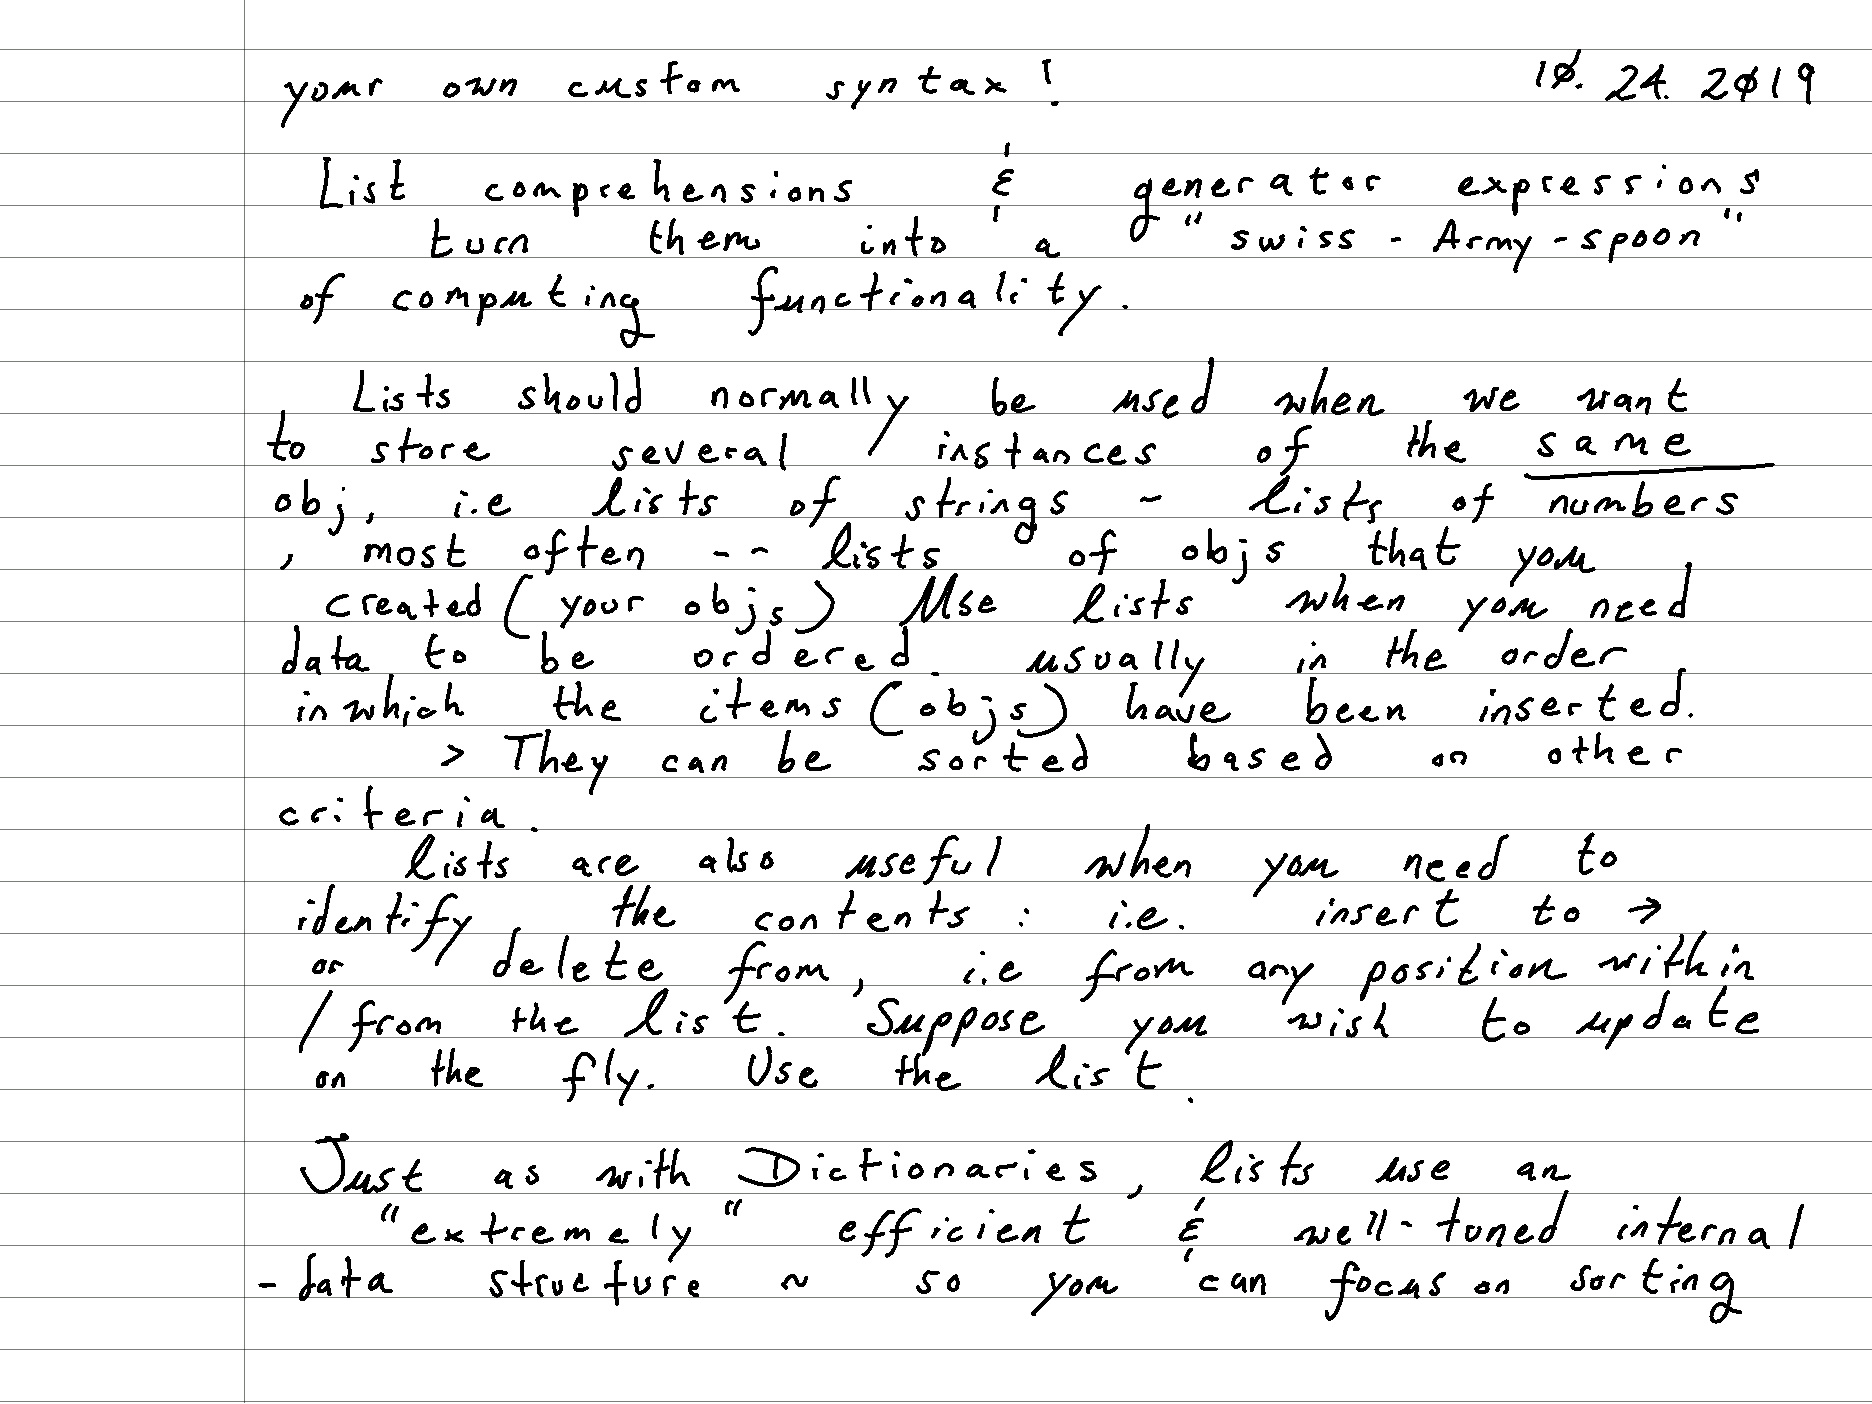 your own custom syntax! 10. 24. 2019
List comprehensions & generator expressions
turn them into a "swiss - Army - spoon"
of computing functionality.
Lists should normally be used when we want
to store several instances of the same
obj, i.e lists of strings ~ lists of numbers
, most often -- lists of objs that you
created (your objs) Use lists when you need
data to be ordered. usually in the order
in which the items (objs) have been inserted.
> They can be sorted based on other
criteria.
lists are also useful when you need to
identify the contents : i.e. insert to →
or delete from, i.e from any position within
/ from the list. Suppose you wish to update
on the fly. Use the list.
Just as with Dictionaries, lists use an
"extremely" efficient & well-tuned internal
- data structure ~ so you can focus on sorting